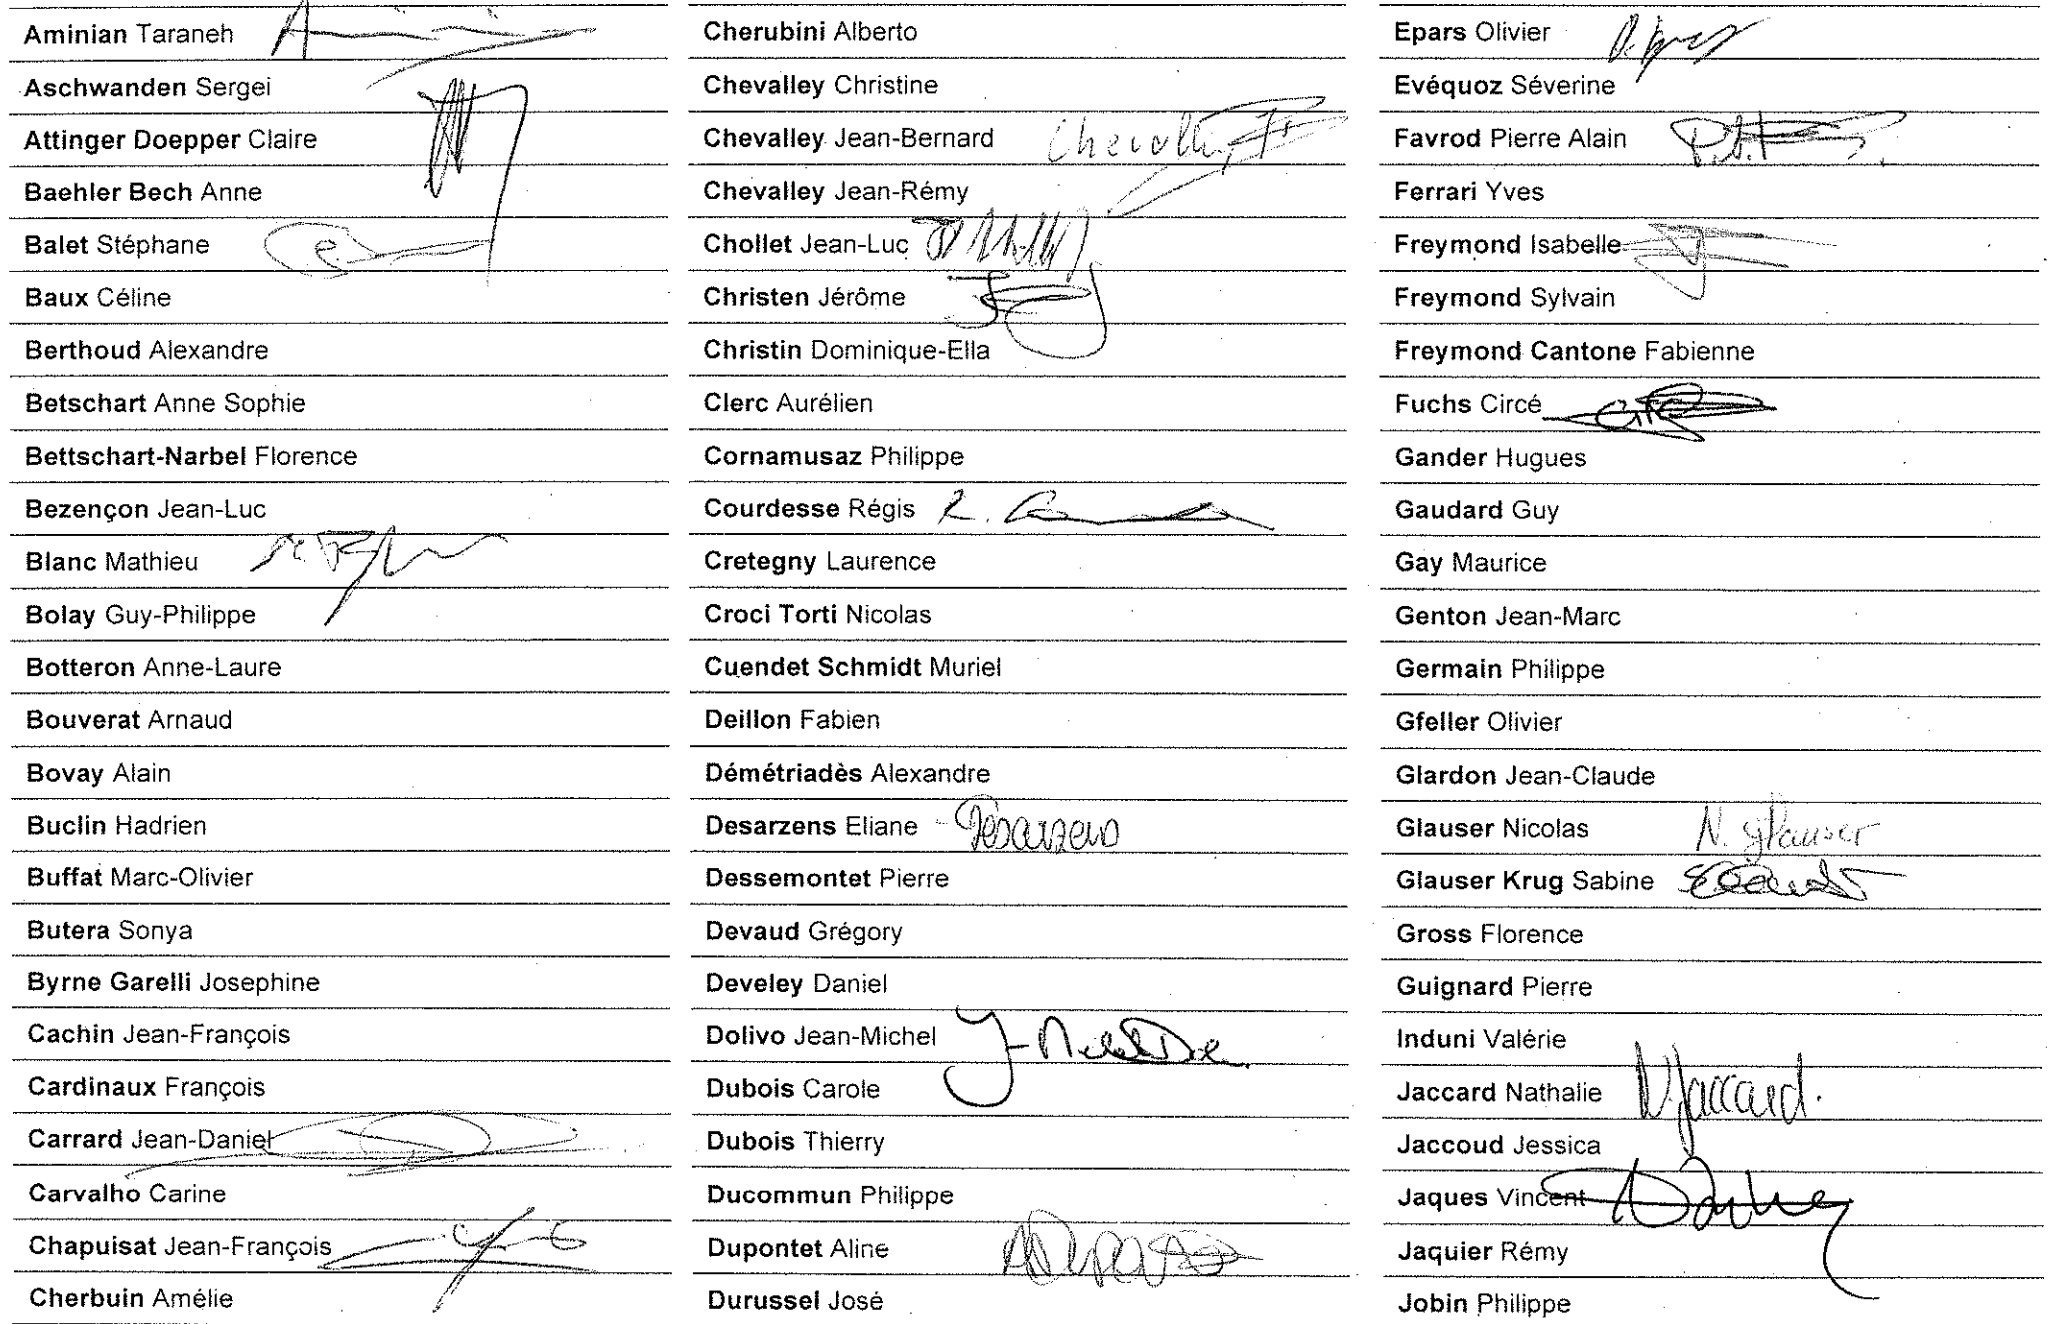 Aminian Taraneh
Aschwanden Sergei
Attinger Doepper Claire
Baehler Bech Anne
Balet Stéphane
Baux Céline
Berthoud Alexandre
Betschart Anne Sophie
Bettschart-Narbel Florence
Bezençon Jean-Luc
Blanc Mathieu
Bolay Guy-Philippe
Botteron Anne-Laure
Bouverat Arnaud
Bovay Alain
Buclin Hadrien
Buffat Marc-Olivier
Butera Sonya
Byrne Garelli Josephine
Cachin Jean-François
Cardinaux François
Carrard Jean-Daniel
Carvalho Carine
Chapuisat Jean-François
Cherbuin Amélie
Cherubini Alberto
Chevalley Christine
Chevalley Jean-Bernard
Chevalley Jean-Rémy
Chollet Jean-Luc
Christen Jérôme
Christin Dominique-Ella
Clerc Aurélien
Cornamusaz Philippe
Courdesse Régis R.
Cretegny Laurence
Croci Torti Nicolas
Cuendet Schmidt Muriel
Deillon Fabien
Démétriadès Alexandre
Desarzens Eliane Desarzens
Dessemontet Pierre
Devaud Grégory
Develey Daniel
Dolivo Jean-Michel
Dubois Carole
Dubois Thierry
Ducommun Philippe
Dupontet Aline
Durussel José
Epars Olivier
Evéquoz Séverine
Favrod Pierre Alain
Ferrari Yves
Freymond Isabelle
Freymond Sylvain
Freymond Cantone Fabienne
Fuchs Circé
Gander Hugues
Gaudard Guy
Gay Maurice
Genton Jean-Marc
Germain Philippe
Gfeller Olivier
Glardon Jean-Claude
Glauser Nicolas N. Glauser
Glauser Krug Sabine
Gross Florence
Guignard Pierre
Induni Valérie
Jaccard Nathalie N. Jaccard.
Jaccoud Jessica
Jaques Vincent
Jaquier Rémy
Jobin Philippe